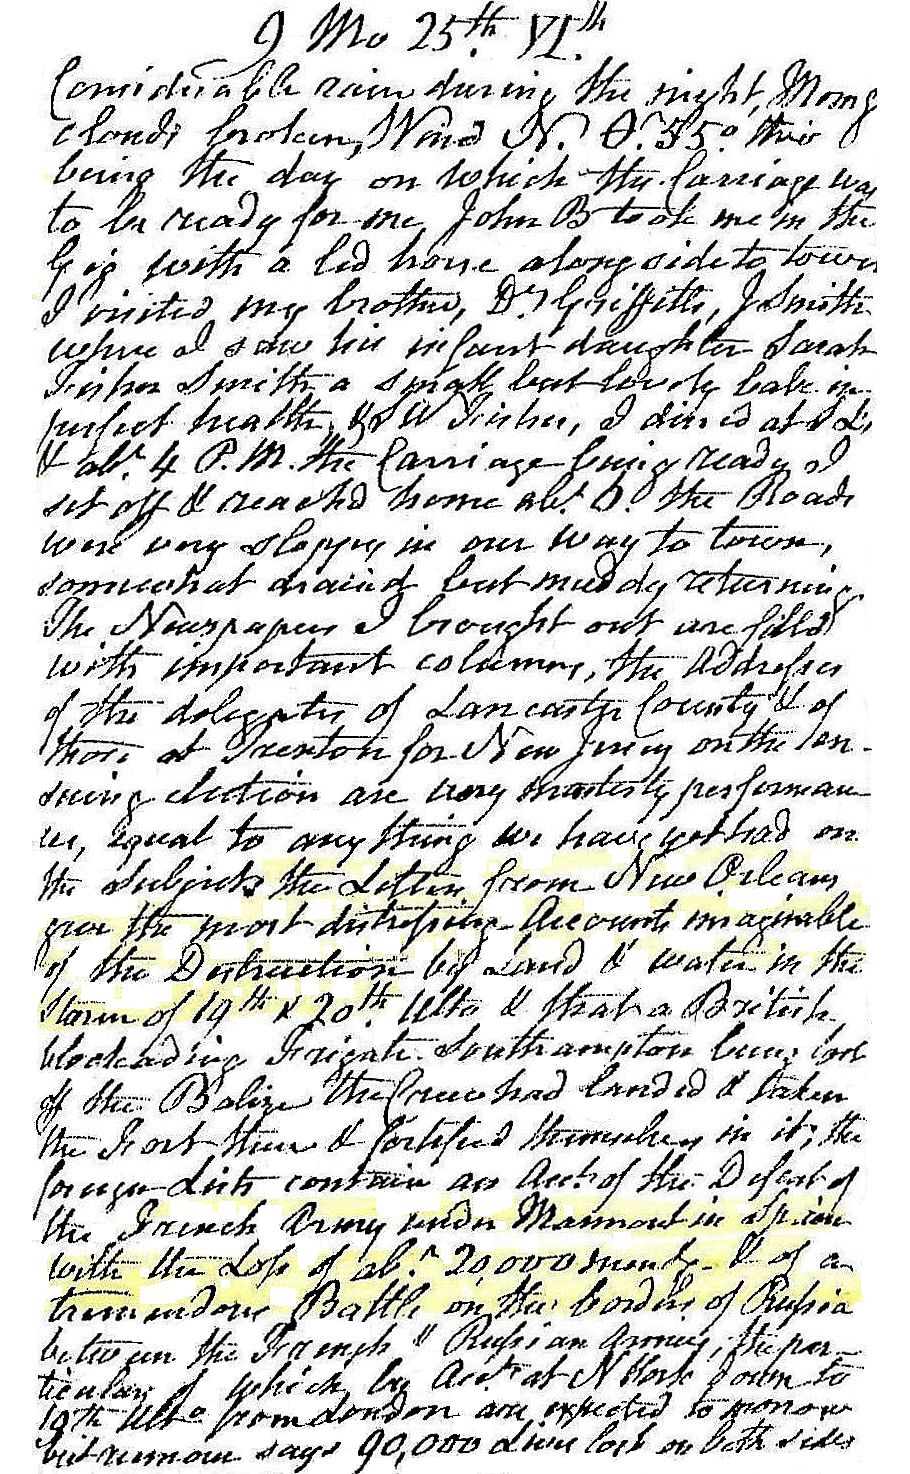 9 Mo 25th. VI.th
Considerable rain during the night, Morng
clouds broken, Wind N. 55° this
being the day on which the Carriage was
to be ready for me John B took me in the
Gig with a led horse alongside to town
I visited my brother, Dr. Griffitts, J Smith
where I saw his infant daughter Sarah
Fisher Smith a small but lovely babe in
perfect health, & S W Fisher, I dined at
& abt. 4 P.M. the Carriage being ready I
set off & reached home abt. the Roads
were very sloppy in our way to town,
somewhat dried but muddy returning
The Newspapers I brought out are filld
with important columns, the Addresses
of the delegates of Lancaster County & of
those at Trenton for New Jersey on the en-
suing election are very masterly performan-
ces, equal to any thing we have yet had on
the Subject, the Letters from New Orleans
give the most distressing Accounts imaginable
of the Destruction by Land & water in the
Storm of 19th & 20th. Ulto & that a British
blockading Frigate Southampton being lost
off the Balize the Crew had landed & taken
the Fort there & fortified themselves in it; the
foreign contain an Acct. of the Defeat of
the French Army under Marmont in Spain
with the Loss of abt. 20,000 & of a
tremendous Battle on the borders of Russia
between the French & Russian Armies, the par-
ticulars of which by Accts. at N York down to
19th Ulto from London are expected to morrow
but rumour says 90,000 Lives lost on both sides